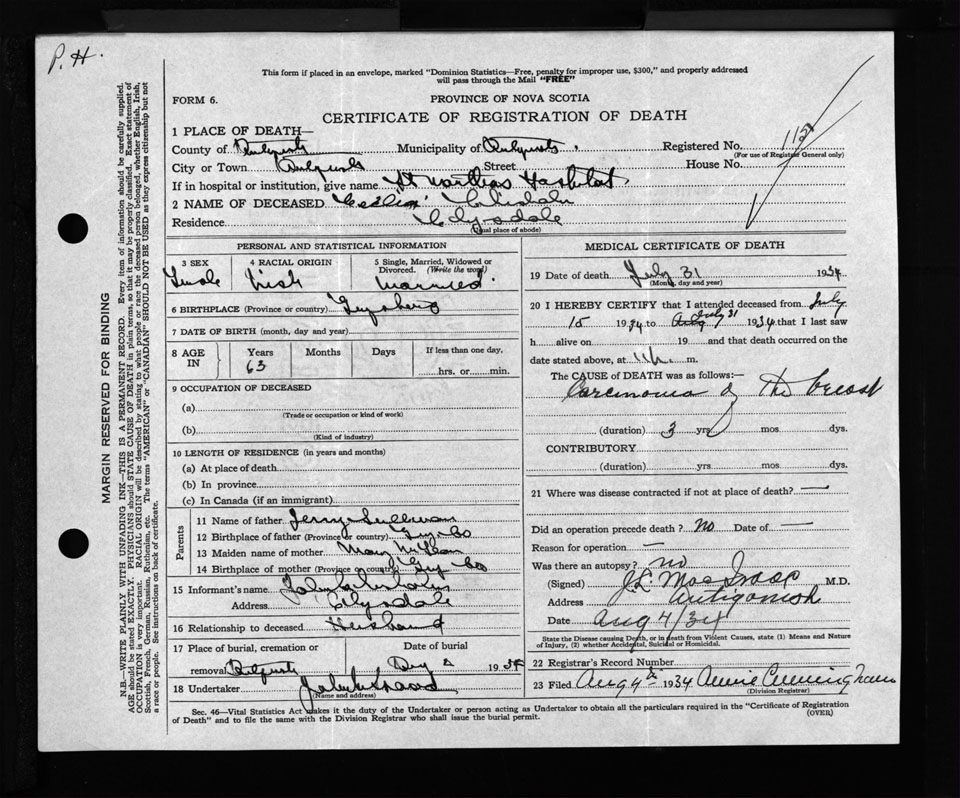 P. H.
This form if placed in an envelope, marked "Dominion Statistics—Free, penalty for improper use, $300," and properly addressed
will pass through the Mail "FREE"
FORM 6.
PROVINCE OF NOVA SCOTIA
CERTIFICATE OF REGISTRATION OF DEATH
1 PLACE OF DEATH—
County of Municipality of Registered No.
(For use of Registrar General only)
City or Town Street House No.
If in hospital or institution, give name St Marthas Hospital
2 NAME OF DECEASED
Residence Clydsdale
(Usual place of abode)
PERSONAL AND STATISTICAL INFORMATION
3 SEX 4 RACIAL ORIGIN 5 Single, Married, Widowed or
Divorced. (Write the word)
Female Irish Married
6 BIRTHPLACE (Province or country)
7 DATE OF BIRTH (month, day and year)
8 AGE IN Years Months Days If less than one day,
63 hrs. or min.
9 OCCUPATION OF DECEASED
(a)
(Trade or occupation or kind of work)
(b)
(Kind of industry)
10 LENGTH OF RESIDENCE (in years and months)
(a) At place of death
(b) In province
(c) In Canada (if an immigrant)
Parents
11 Name of father Jerry Sullivan
12 Birthplace of father (Province or country) Guy. Co
13 Maiden name of mother Mary
14 Birthplace of mother (Province or country) Guy Co
15 Informant's name
Address Clydsdale
16 Relationship to deceased Husband
17 Place of burial, cremation or removal Date of burial
2 1934
18 Undertaker
(Name and address)
MEDICAL CERTIFICATE OF DEATH
19 Date of death July 31 1934
(Month, day and year)
20 I HEREBY CERTIFY that I attended deceased from July
15 1934 to July 31 1934 that I last saw
h alive on 19 and that death occurred on
date stated above, at m.
The CAUSE of DEATH was as follows:—
Carcinoma of the breast
(duration) 3 yrs. mos. dys.
CONTRIBUTORY
(duration) yrs. mos. dys.
21 Where was disease contracted if not at place of death? —
Did an operation precede death? No Date of —
Reason for operation —
Was there an autopsy? no
(Signed) M.D.
Address Antigonish
Date Aug 4/34
State the Disease causing Death, or in death from Violent Causes, state (1) Means and Nature
of Injury, (2) whether Accidental, Suicidal or Homicidal.
22 Registrar's Record Number
23 Filed Aug 4th 1934 Annie Cunningham
(Division Registrar)
Sec. 46—Vital Statistics Act makes it the duty of the Undertaker or person acting as Undertaker to obtain all the particulars required in the "Certificate of Registration
of Death" and to file the same with the Division Registrar who shall issue the burial permit. (OVER)
MARGIN RESERVED FOR BINDING
N.B.—WRITE PLAINLY WITH UNFADING INK—THIS IS A PERMANENT RECORD. Every item of information should be carefully supplied.
AGE should be stated EXACTLY. PHYSICIANS should STATE CAUSE OF DEATH in plain terms, so that it may be properly classified. Exact statement of
OCCUPATION is very important. RACIAL ORIGIN will be described by stating to what people or race the deceased person belonged, whether English, Irish,
Scottish, French, German, Russian, Ruthenian, etc. The terms "AMERICAN" or "CANADIAN" SHOULD NOT BE USED as they express citizenship but not
a race or people. See instructions on back of certificate.